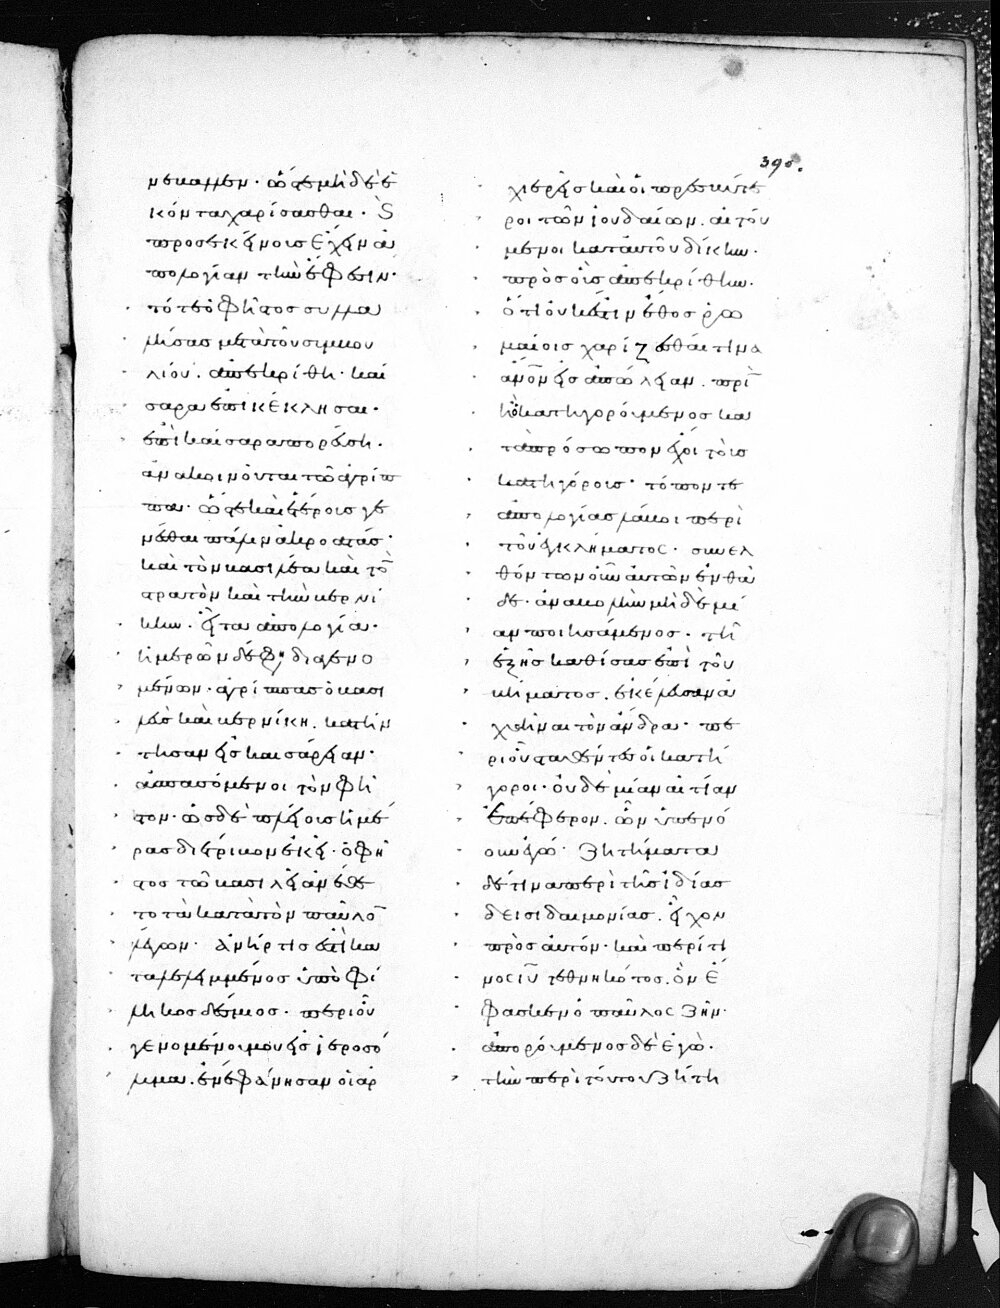 398.
νεκαμεν· ὥστε μὴ δεδε
κόντα χαρίσασθαι· δ
προσεκείνοις ἔχειν ἀ
πολογίαν τὴν ἔφεσιν·
τότε ὁ φῆστος συλλα
λήσας μετὰ τοῦ συμβου
λίου. ἀπεκρίθη· και
σαρα ἐπικέκλησαι·
ἐπὶ καίσαρα πορεύση·
ἀνακοινοῦται τῶ ἀγρίπ
πα· ὥστε καὶ ἑτέροις γε
νέσθαι πάλιν ἀκροατάς·
καὶ τὸν βασιλέα καὶ τὸ
στρατὸν καὶ τὴν βερνί
κην. εἶτα ἀπολογία·
ἡμερῶν δέ φη διαγενο
μένων· ἀγρίππας ὁ βασι
λεὺς καὶ βερνίκη. κατήν
τησαν εἰς καισάρειαν·
ἀσπασόμενοι τὸν φῆ
στον· ὡς δὲ πλείους ἡμέ
ρας διέτριβον ἐκεῖ· ὁ φῆ
στος τῶ βασιλεῖ ἀνέθε
το τὰ κατὰ τὸν παῦλο
λέγων· ἀνήρ τις ἐστὶ κα
ταλελειμμένος ὑπὸ φί
ληκος δέσμιος· περὶ οὗ
γενομένου μου εἰς ἱεροσό
λυμα. ἐνεφάνησαν οἱ ἀρ
χιερεῖς καὶ οἱ πρεσβύτε
ροι τῶν ἰουδαίων. αἰτού
μενοι κατ' αὐτοῦ δίκην·
πρὸς οὓς ἀπεκρίθην.
ὅτι οὐκ ἔστιν ἔθος ῥω
μαίοις χαρίζεσθαί τινα
ἄνον εἰς ἀπώλειαν. πρὶ
ἢ ὁ κατηγορούμενος κα
τὰ πρόσωπον ἔχοι τοὺς
κατηγόρους· τόπον τε
ἀπολογίας λάβοι περὶ
τοῦ ἐγκλήματος· συνελ
θόντων οὖν αὐτῶν ἐνθά
δε· ἀναβολὴν μηδεμί
αν ποιησάμενος. τῆ
ἑξῆς καθίσας ἐπὶ τοῦ
βήματος. ἐκέλευσα ἀ
χθῆναι τὸν ἄνδρα· πε
ρὶ οὗ σταθέντες οἱ κατή
γοροι· οὐδεμίαν αἰτίαν
ἐπέφερον. ὧν ὑπενό
ουν ἐγώ· ζητήματα
δέ τινα περὶ τῆς ἰδίας
δεισιδαιμονίας. εἶχον
πρὸς αὐτόν· καὶ περί τι
νος ιυ τεθνηκότος. ὃν ἔ
φασκεν ὁ παῦλος ζῆν·
ἀπορούμενος δὲ ἐγὼ.
τὴν περὶ τούτου ζήτη